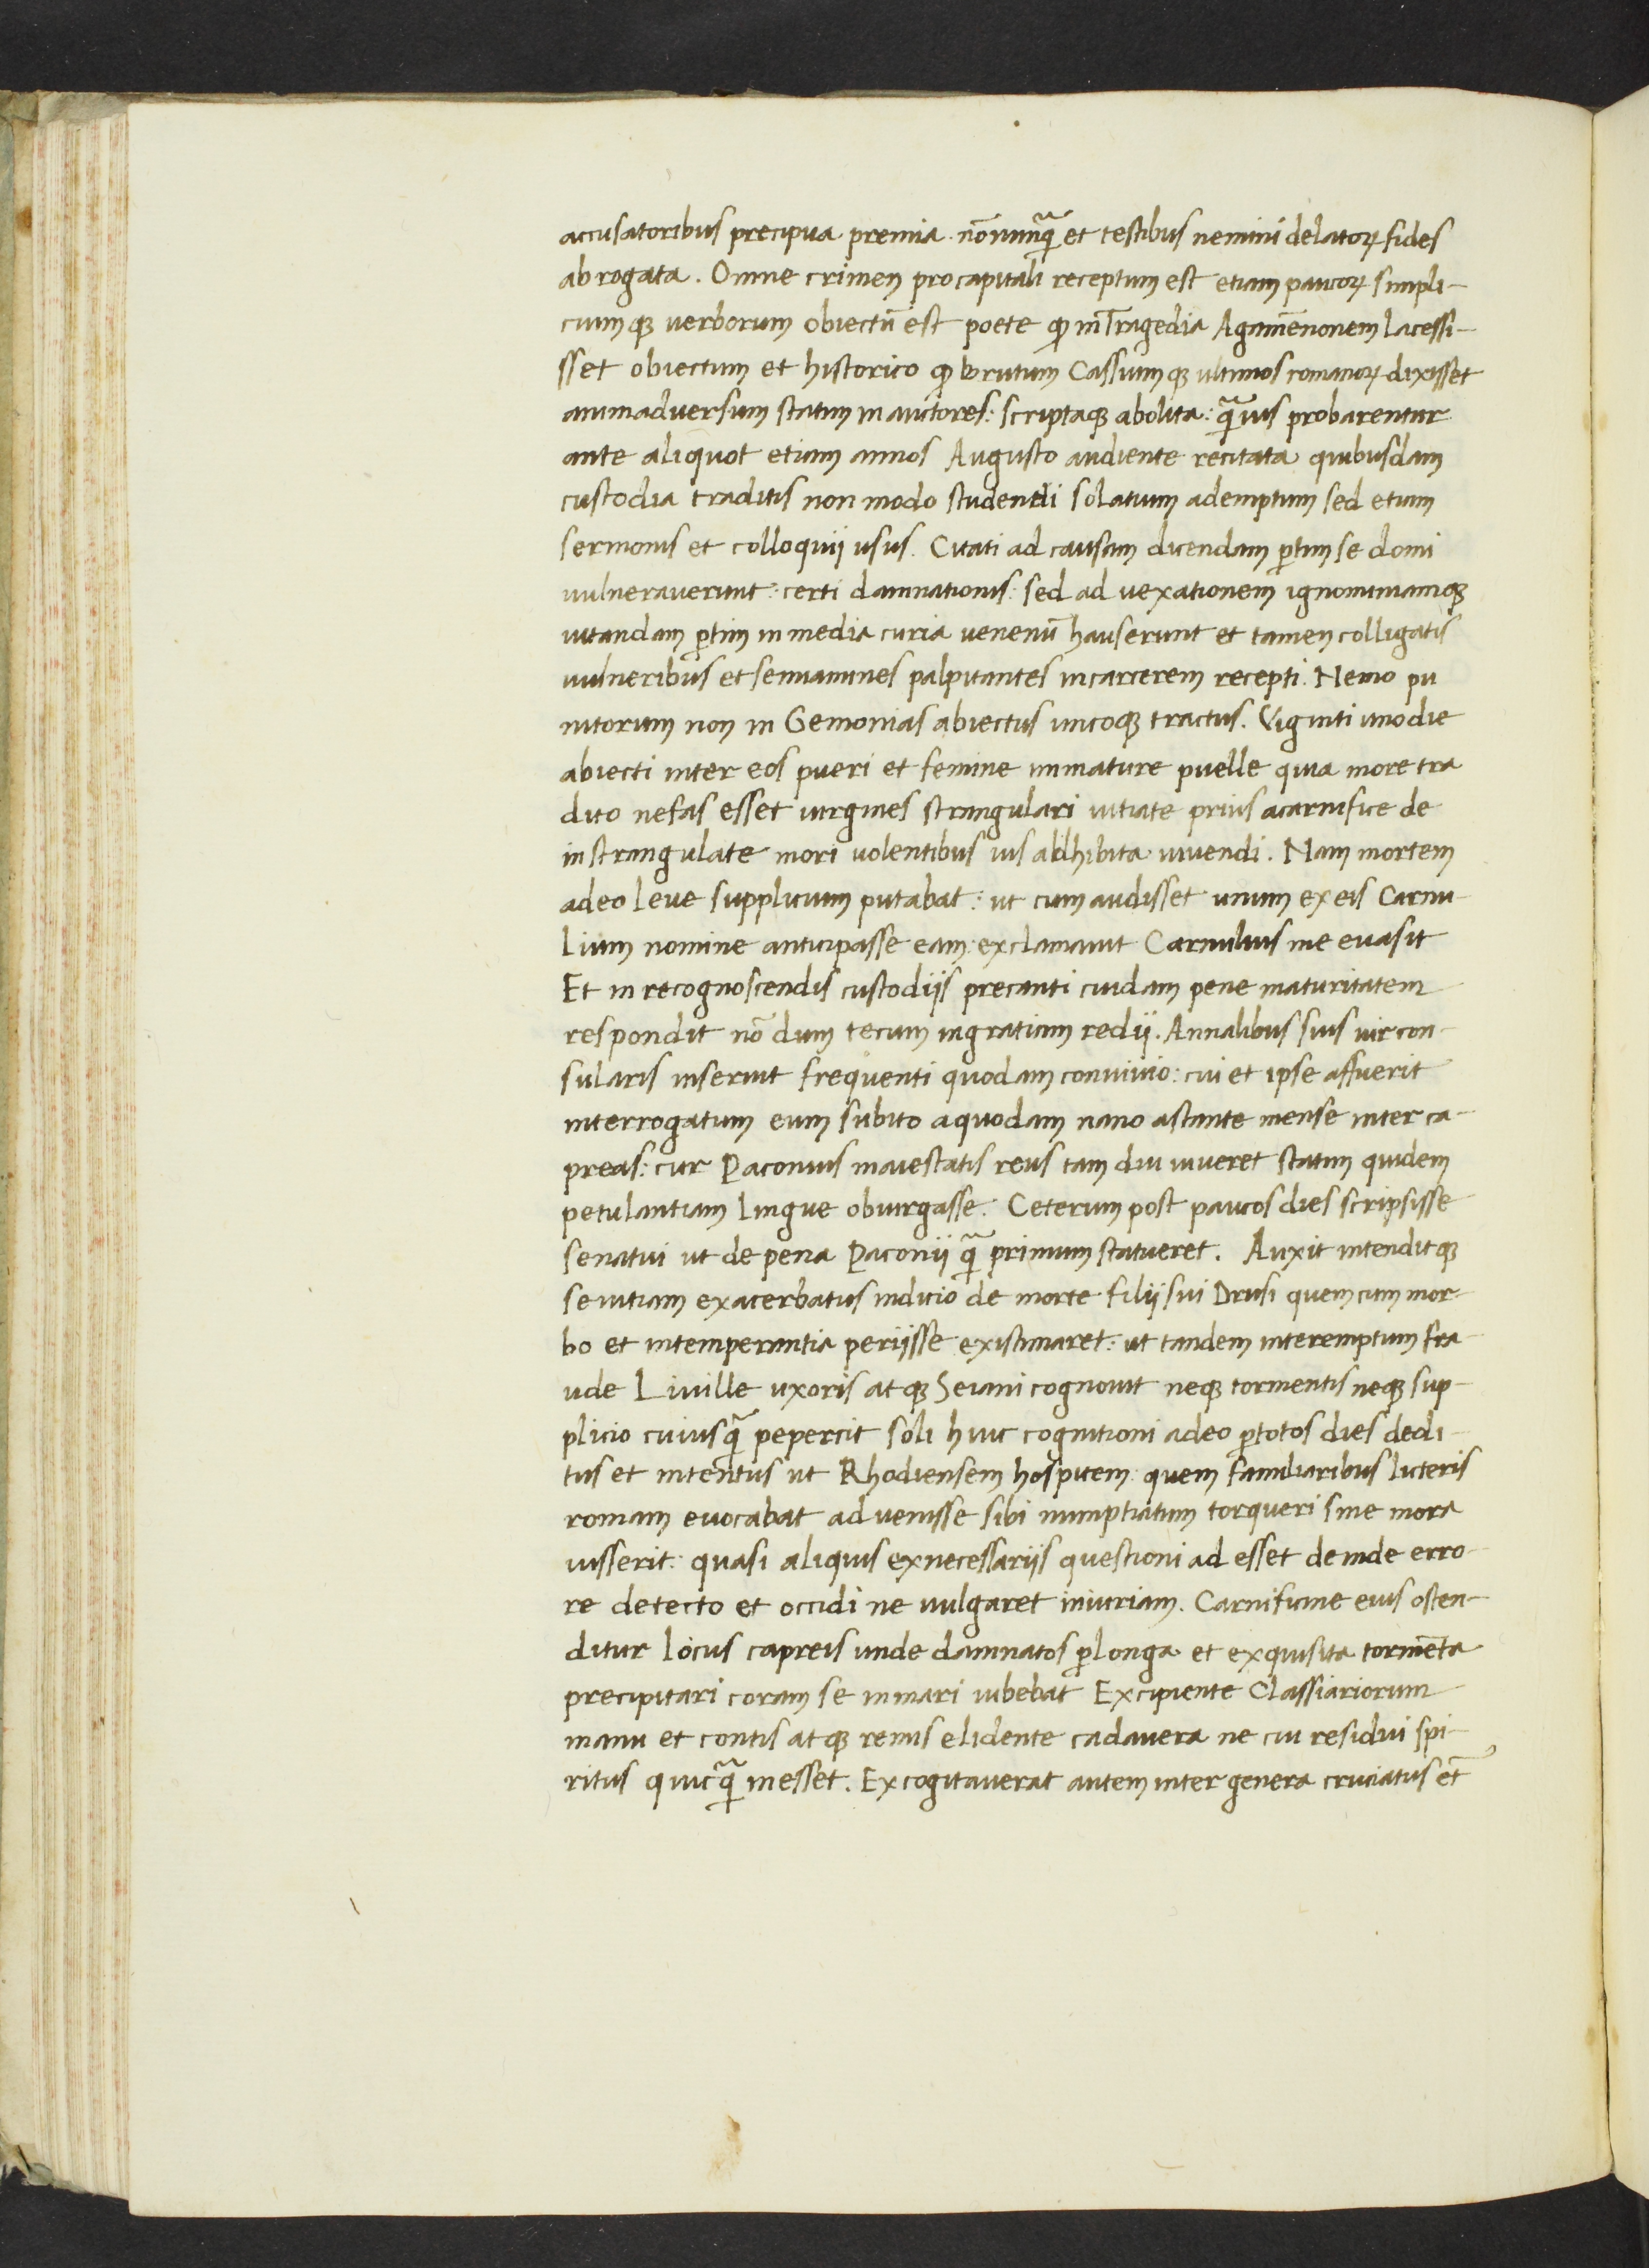 accusatoribus precipua premia nōnunq̃ et testibus nemini delatoꝝ fides
abrogata. Omne crimen pro capitali receptum est etiam paucoꝝ simpli-
cium qꝫ verborum obiectū est poete ꝙ in Tragedia Agamēnonem lacessi-
sset obiectum et historico ꝙ brutum Cassium qꝫ ultimos romanoꝝ dixisset
animadversum statim in auctores: scriptaqꝫ abolita: q̃uis probarentur
ante aliquot etiam annos Augusto audiente recitata quibusdam
custodia traditis non modo studendi solatium ademptum sed etiam
sermonis et colloquij usus. Citati ad causam dicendam ꝑtim se domi
vulneraverunt: certi damnationis: sed ad vexationem ignominiamqꝫ
vitandam ꝑtim in media curia venenū hauserunt et tamen colligatis
vulneribus et semianimes palpitantes in carcerem recepti. Nemo pu
nitorum non in Gemonias abiectus uncoqꝫ tractus. Viginti uno die
abiecti inter eos pueri et femine immature puelle quia more tra
dito nefas esset virgines strangulari vitiate prius a carnifice de
in strangulate mori volentibus vis adhibita vivendi. Nam mortem
adeo leve supplicium putabat: ut cum audisset unum ex eis Carnu-
lium nomine anticipasse eam: exclamavit Carnulius me evasit
Et in recognoscendis custodijs precanti cuidam pene maturitatem
respondit nō dum tecum in gratiam redij. Annalibus suis vir con-
sularis inseruit frequenti quodam convivio: cui et ipse affuerit
interrogatum eum subito a quodam nano astante mense inter ca-
preas: cur Paconius maiestatis reus tam diu viveret statim quidem
petulantiam lingue obiurgasse. Ceterum post paucos dies scripsisse
senatui ut de pena Paconij q̃ primum statueret. Auxit intenditqꝫ
sevitiam exacerbatus indicio de morte filij sui Drusi quem cum mor-
bo et intemperantia perijsse existimaret: ut tandem interemptum fra
ude Liville uxoris at qꝫ Seiani cognovit neqꝫ tormentis neqꝫ sup-
plicio cuiusq̃ pepercit soli huic cognitioni adeo ꝑ totos dies dedi-
tus et intentus ut Rhodiensem hospitem quem familiaribus licteris
romam evocabat advenisse sibi numptiatum torqueri sine mora
iusserit: quasi aliquis ex necessarijs questioni ad esset deinde erro-
re detecto et occidi ne vulgaret iniuriam. Carnificine eius osten-
ditur locus capreis unde damnatos ꝑ longa et exquisita tormēta
precipitari coram se in mari iubebat Excipiente Classiariorum
manu et contis at qꝫ remis elidente cadavera ne cui residui spi-
ritus quicq̃ inesset. Excogitaverat autem inter genera cruciatus et̄